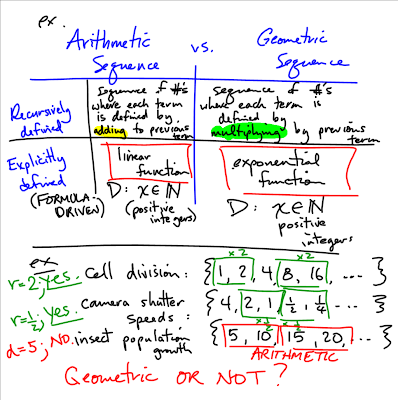 ex.
Arithmetic Sequence vs. Geometric Sequence
Recursively defined
sequence of #'s where each term is defined by adding to previous term
sequence of #'s where each term is defined by multiplying by previous term
Explicitly defined (FORMULA-DRIVEN)
linear function
D: x∈ℕ (positive integers)
exponential function
D: x∈ℕ positive integers
ex
r=2; yes. cell division: {1, 2, 4, 8, 16, ... } x2 x2
r=½; yes. camera shutter speeds: {4, 2, 1, ½, ¼, ... } x½ x½
d=5; NO. insect population growth {5, 10, 15, 20, ... } ARITHMETIC
Geometric OR NOT?